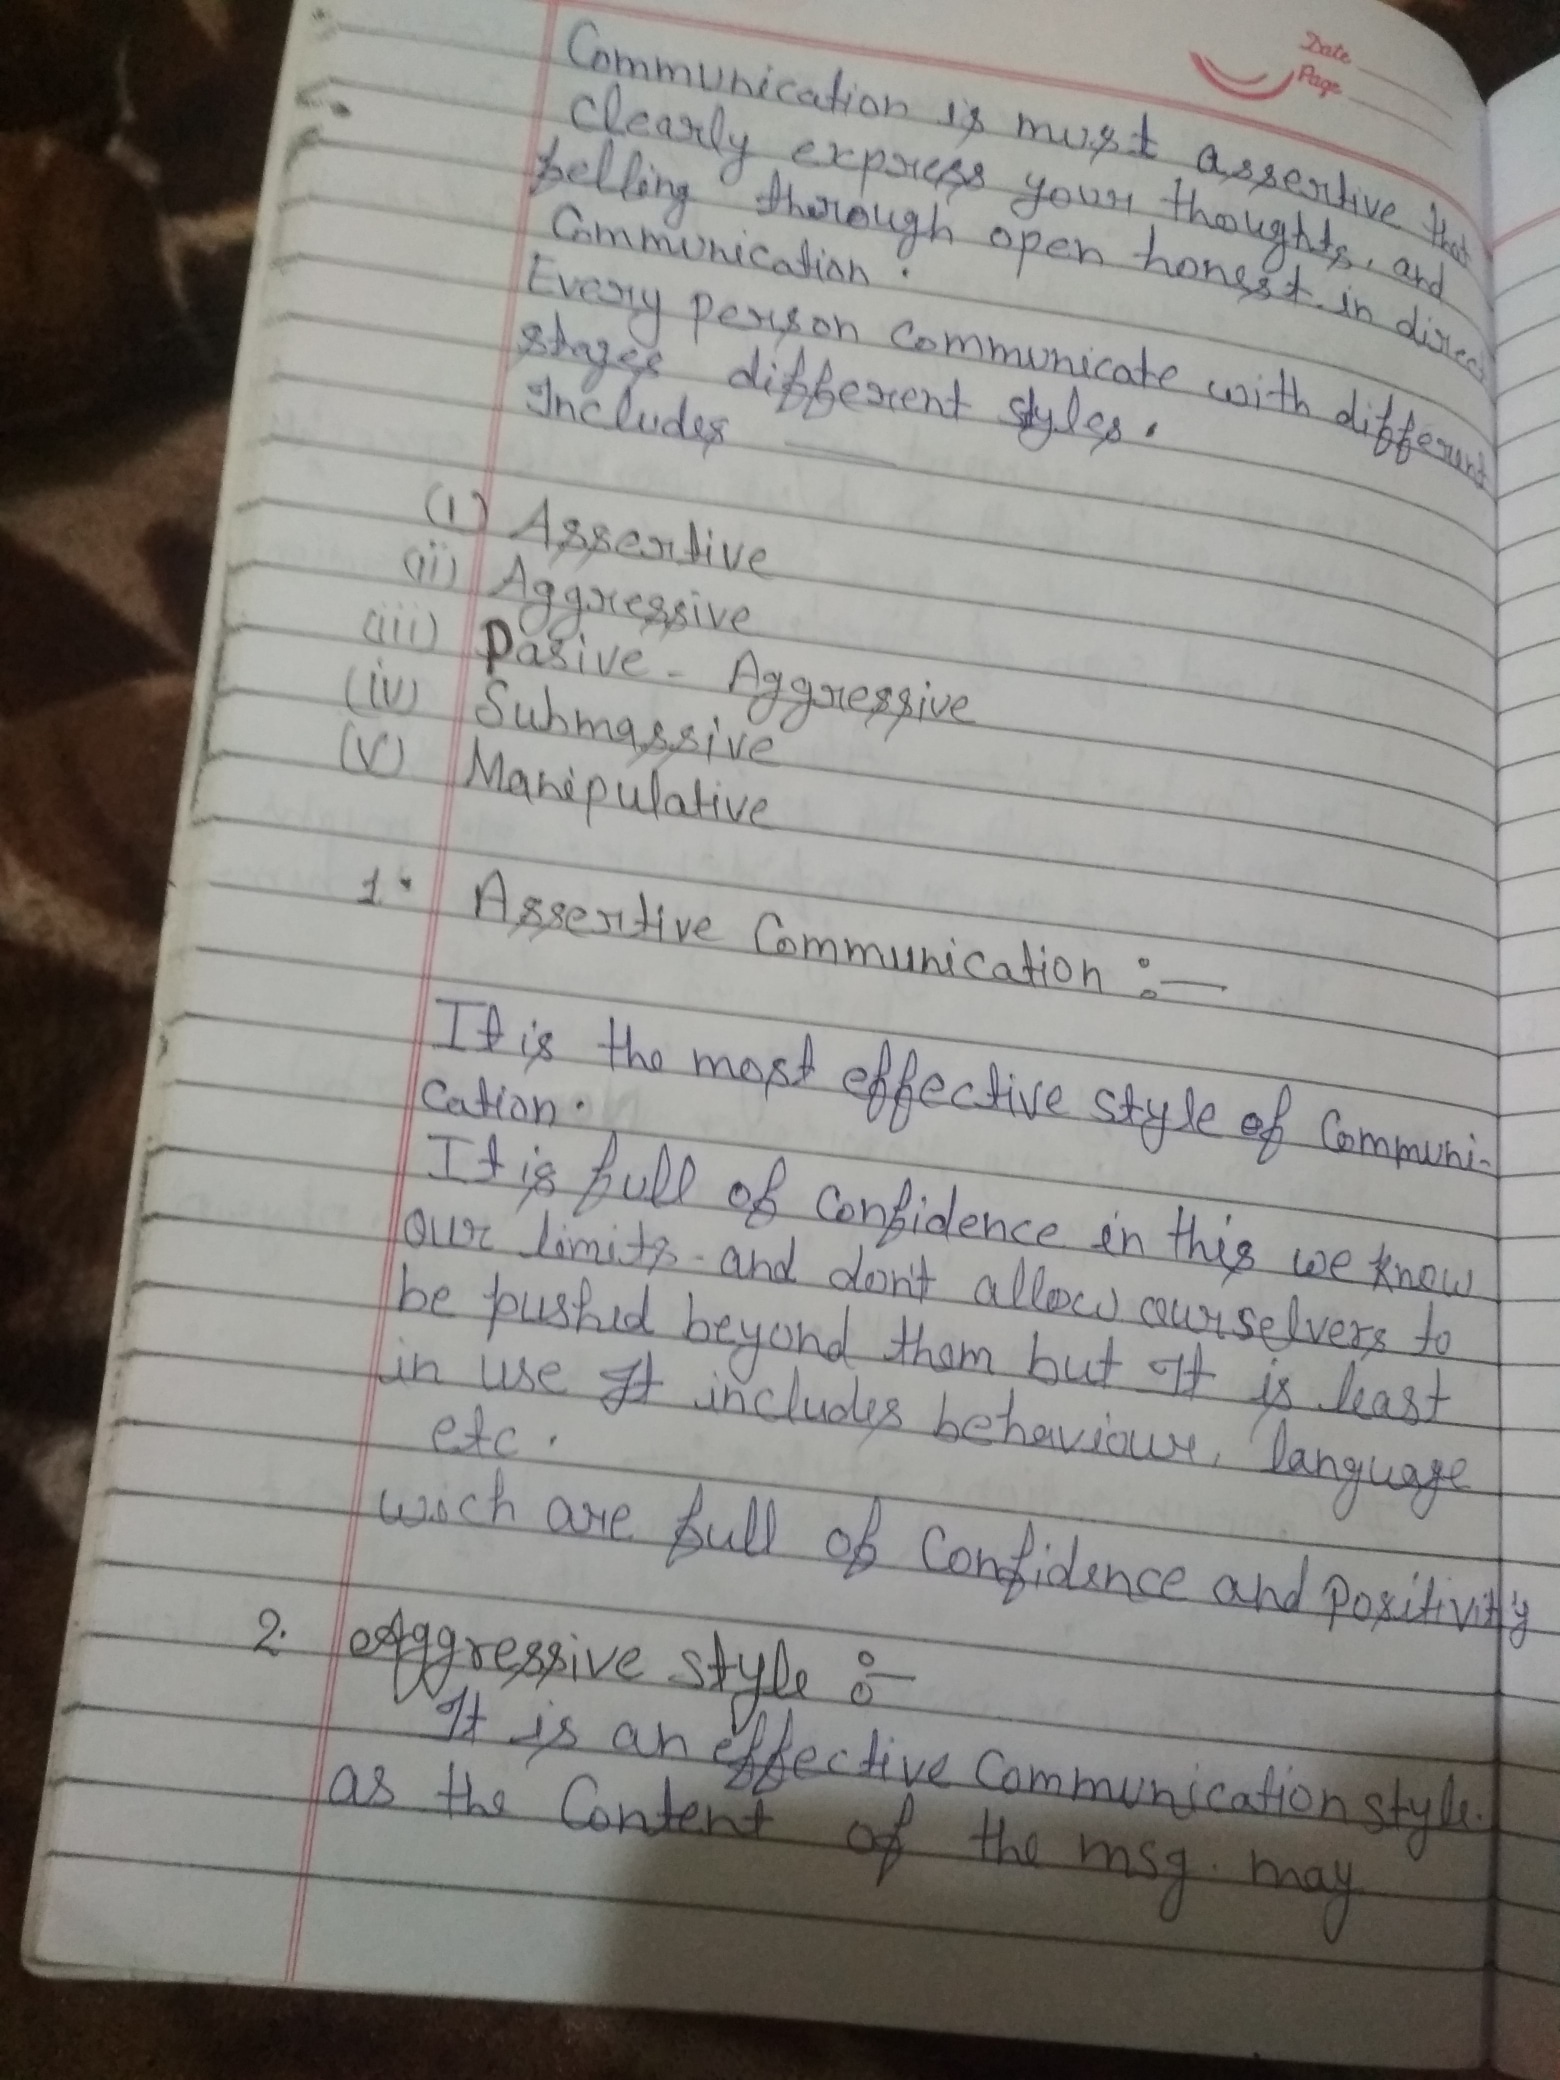 Date
Page
Communication is must assertive that
clearly express your thoughts, and
felling thorough open honest in direc
Communication.
Every person communicate with different
stages different styles.
Includes
(i) Assertive
(ii) Aggressive
(iii) Pasive - Aggressive
(iv) Submassive
(v) Manipulative
1. Assertive Communication :-
It is the most effective style of Communi-
cation.
It is full of confidence in this we know
our limits and don't allow ourselvers to
be pushed beyond them but It is least
in use It includes behaviour, language
etc.
wich are full of Confidence and Positivity
2. Aggressive style :-
It is an effective Communication style.
as the Content of the msg. may